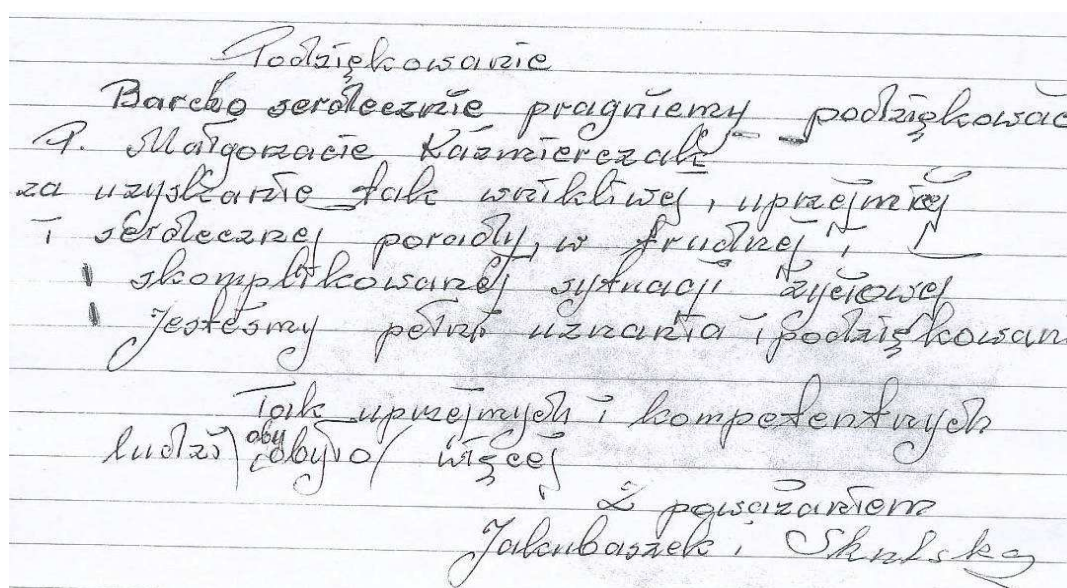 Podziękowanie
Bardzo serdecznie pragniemy podziękować
P. Małgorzacie Kaźmierczak
za uzyskanie tak wnikliwej, uprzejmej
i serdecznej porady, w trudnej i
skomplikowanej sytuacji życiowej
Jesteśmy pełni uznania i podziękowani
Tak uprzejmych i kompetentnych
ludzi aby było więcej
Z poważaniem
Jakubaszek i